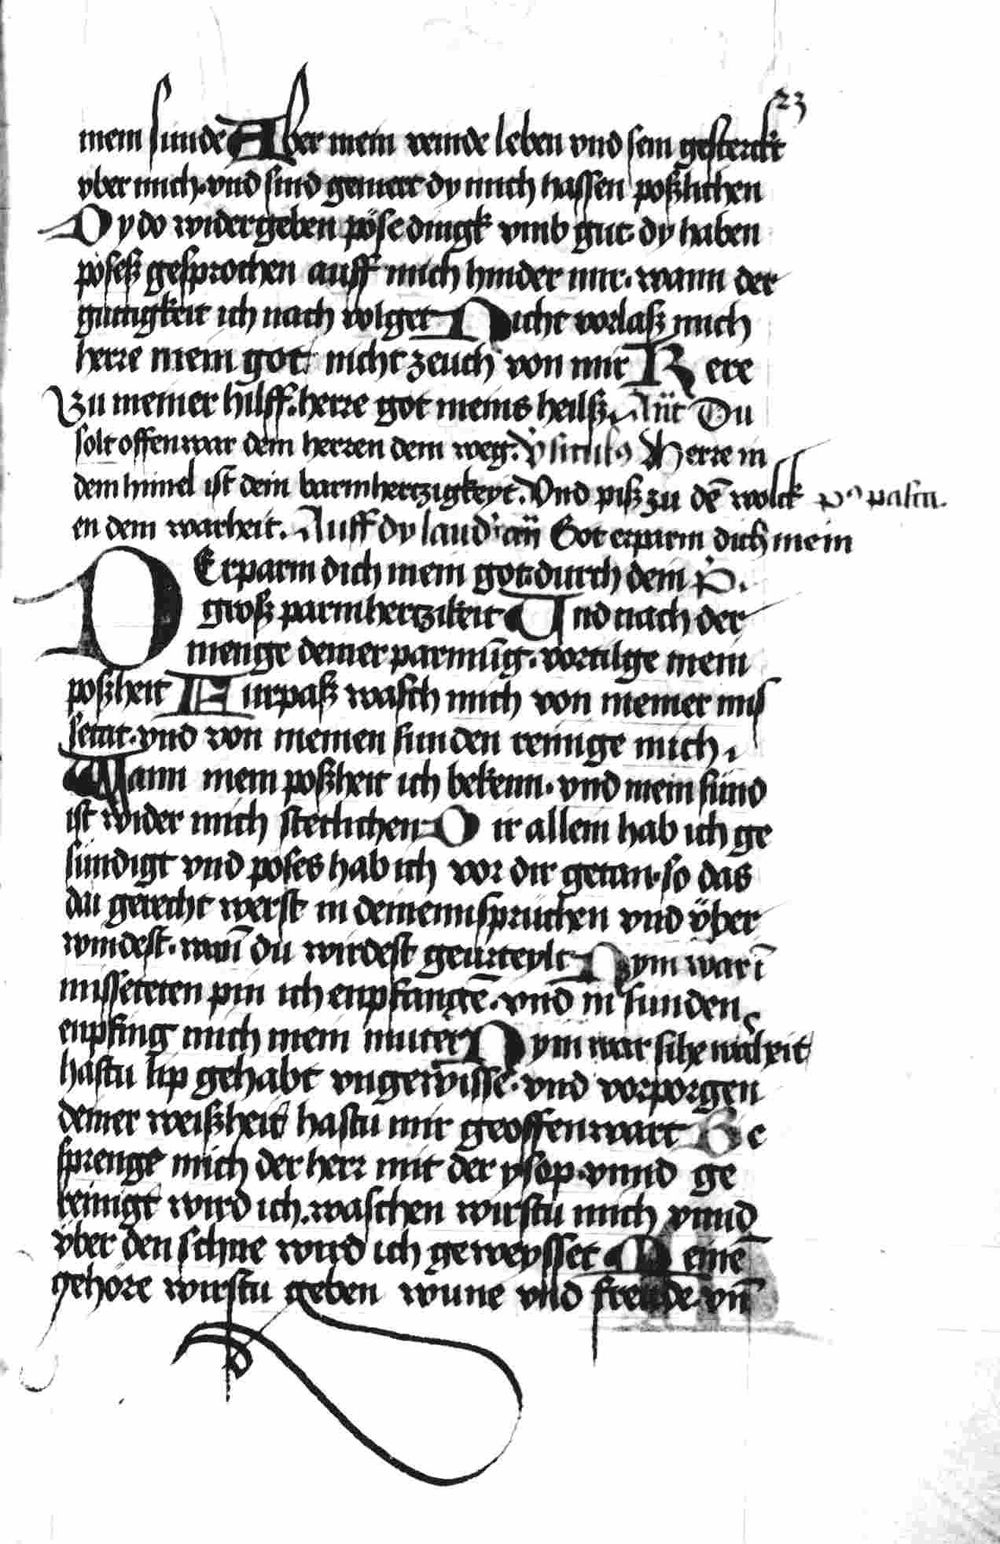 23
mein sunde Aber mein veinde leben vnd sein gesterckt
vber mich. vnd sind gemert dy mich hassen poßlichen
Dy do widergeben pöse dingk vmb gut. dy haben
pöseß gesprochen auff mich hinder mir. wann der
guttigkeit ich nach volget Nicht vorlaß mich
herre mein got. nicht zeuch von mir Kere
Zu meiner hilff. herre got meins heilß. Añt Du
solt offenwar dem herren dein weg. Herre in
dem himel ist dein barmhertzigkeyt. Vnd piß zu dē wolck
en dein warheit. Auff dy laud' an̄ Got erparm dich mein
Erparm dich mein got. durch dein p̄s.
groß parmhertzikeit Vnd nach der
menge deiner parmūg. vortilge mein
poßheit Furpaß wasch mich von meiner mis
setat. vnd von meinen sunden reinige mich.
Wann mein poßheit ich bekenn. vnd mein sund
ist wider mich stetlichen Dir allein hab ich ge
sundigt vnd poses hab ich vor dir getan. so das
du gerecht werst in deinenn spruchen vnd über
windest. wan̄ du wirdest geurteylt Nym war ī
misseteten pin ich enpfangē. vnd in sunden
enpfing mich mein muter Nym war sihe warheit
hastu lip gehabt vngewisse. vnd vorporgen
deiner weißheit hastu mir geoffenwart Be
sprenge mich der herr mit der ysop. vnnd ge
reinigt wird ich. waschen wirstu mich vnnd
über den schne wird ich geweysset Meine
gehore wirstu geben wune vnd freude. vn̄